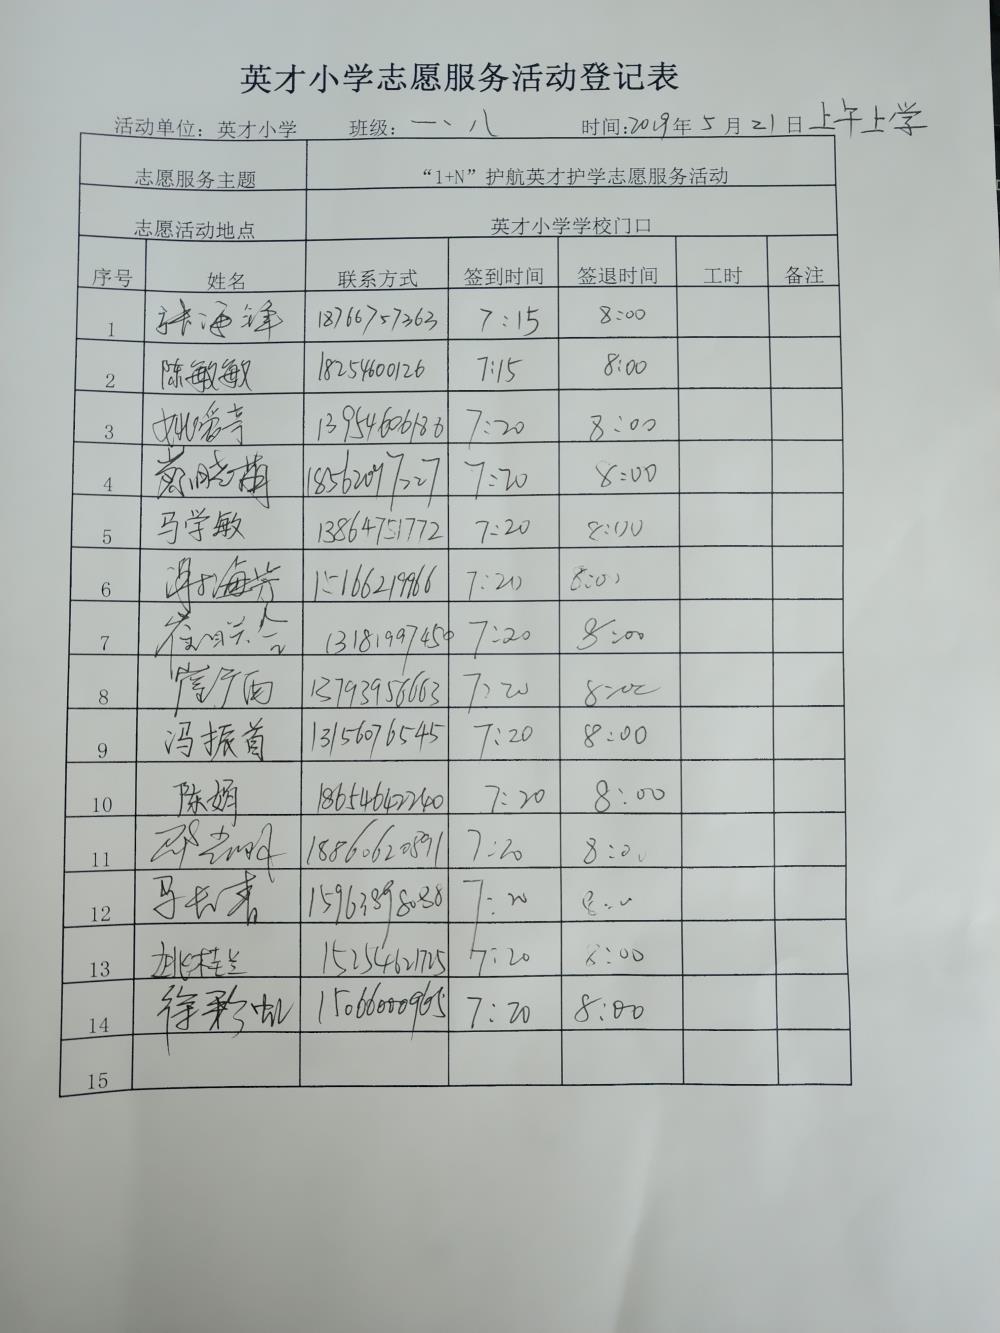 英才小学志愿服务活动登记表
活动单位：英才小学 班级：一、八 时间:2019年5月21日上午上学
志愿服务主题 “1+N”护航英才护学志愿服务活动
志愿活动地点 英才小学学校门口
序号 姓名 联系方式 签到时间 签退时间 工时 备注
1 张海锋 18766757363 7:15 8:00
2 陈敏敏 18254600126 7:15 8:00
3 姚爱亭 13954606186 7:20 8:00
4 18562097727 7:20 8:00
5 马学敏 13864751772 7:20 8:00
6 海芳 15166219966 7:20 8:00
7 13181997450 7:20 8:00
8 13793956663 7:20 8:00
9 冯振首 13156076545 7:20 8:00
10 陈娟 18654642240 7:20 8:00
11 18860620891 7:20 8:0
12 马长青 15963898088 7:20 8:0
13 姚桂兰 15254621725 7:20 8:00
14 徐彩虹 15066000965 7:20 8:00
15